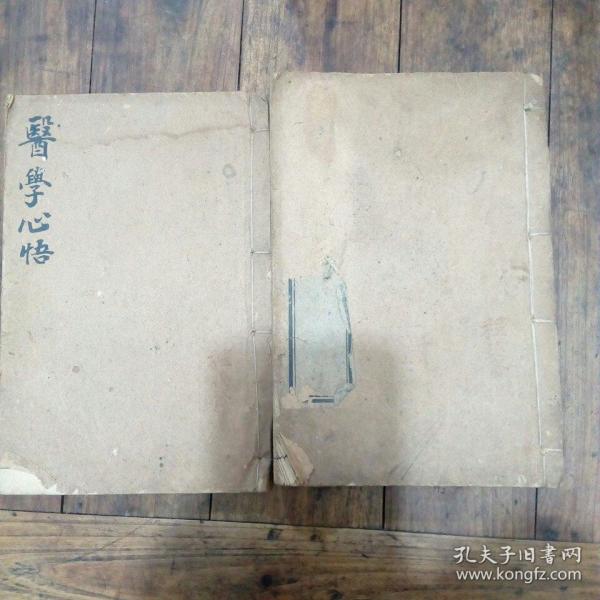 醫學心悟
孔夫子旧書网
www.kongfz.com